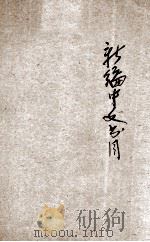 新编中文书目
mtoou.info